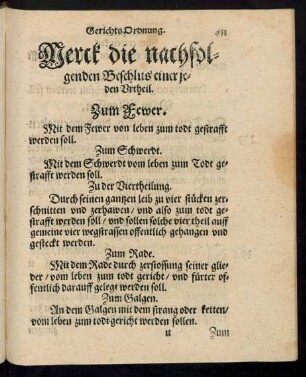 Gerichts Ordnung.
Merck die nachfol-
genden Beschlus einer je-
den Vrtheil.
Zum Fewer.
Mit dem Fewer von leben zum todt gestrafft
werden soll.
Zum Schwerdt.
Mit dem Schwerdt vom leben zum Todt ge-
strafft werden soll.
Zu der Viertheilung.
Durch seinen gantzen leib zu vier stücken zer-
schnitten vnd zerhawen/ vnd also zum todt ge-
strafft werden soll/ vnd sollen solche viertheil auff
gemeine vier wegstrassen offentlich gehangen vnd
gesteckt werden.
Zum Rade.
Mit dem Rade durch zerstossung seiner glie-
der/ vom leben zum todt gericht/ vnd fürter of-
fentlich darauff gelegt werden soll.
Zum Galgen.
An dem Galgen mit dem strang oder ketten/
vom leben zum todt gericht werden sollen.
u Zum